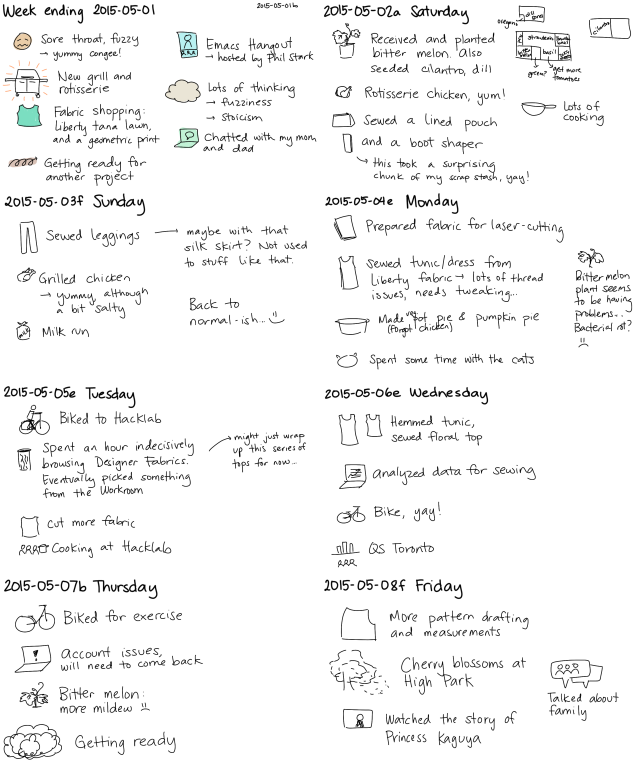 Week ending 2015-05-01
2015-05-01b
Sore throat, fuzzy
→ yummy congee!
New grill and
rotisserie
Fabric shopping:
Liberty tana lawn,
and a geometric print
Getting ready for
another project
Emacs Hangout
→ hosted by Phil Stark
Lots of thinking
→ fuzziness
→ stoicism
Chatted with my mom
and dad
2015-05-02a Saturday
Received and planted
bitter melon. Also
seeded cilantro, dill
Rotisserie chicken, yum!
Sewed a lined pouch
and a boot shaper
→ this took a surprising
chunk of my scrap stash, yay!
oregano
strawberries
basil
green?
get more
tomatoes
cilantro
Lots of
cooking
2015-05-03f Sunday
Sewed leggings
→ maybe with that
silk skirt? Not used
to stuff like that.
Grilled chicken
→ yummy, although
a bit salty
Milk run
Back to
normal-ish...
2015-05-04e Monday
Prepared fabric for laser-cutting
Sewed tunic/dress from
Liberty fabric → lots of thread
issues, needs tweaking...
Made veg pot pie & pumpkin pie
(forgot chicken)
Spent some time with the cats
Bitter melon
plant seems
to be having
problems...
Bacterial rot?
2015-05-05e Tuesday
Biked to Hacklab
Spent an hour indecisively
browsing Designer Fabrics.
Eventually picked something
from the Workroom
→ might just wrap
up this series of
tops for now...
Cut more fabric
Cooking at Hacklab
2015-05-06e Wednesday
Hemmed tunic,
sewed floral top
analyzed data for sewing
Bike, yay!
QS Toronto
2015-05-07b Thursday
Biked for exercise
!
Account issues,
will need to come back
Bitter melon:
more mildew
Getting ready
2015-05-08f Friday
More pattern drafting
and measurements
Cherry blossoms at
High Park
Talked about
family
Watched the story of
Princess Kaguya